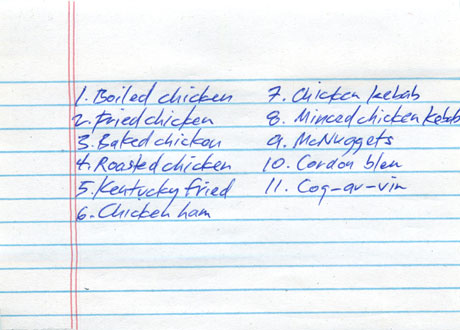 1. Boiled chicken
2. Fried chicken
3. Baked chicken
4. Roasted chicken
5. Kentucky fried
6. Chicken ham
7. Chicken kebab
8. Minced chicken kebab
9. McNuggets
10. Cordon bleu
11. Coq-au-vin